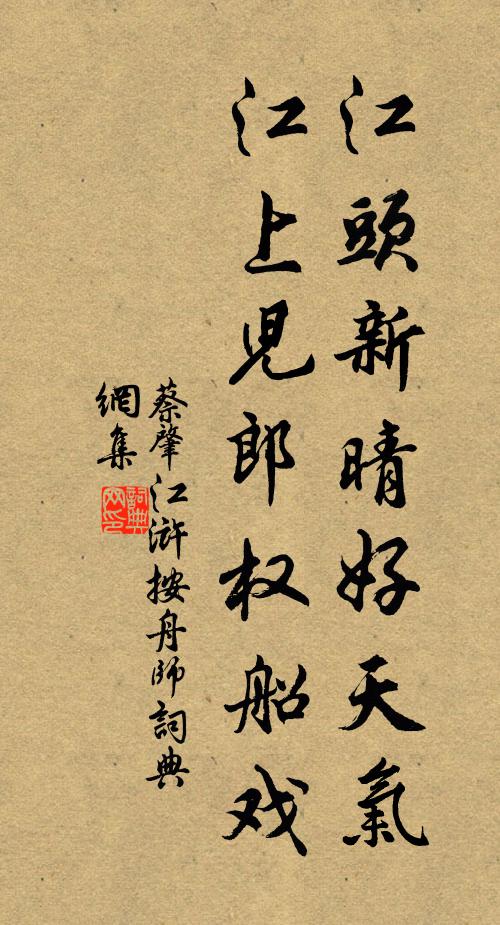 江頭新晴好天氣
江上児郎权船戏
蔡肇江滸按舟師詞典
網集
詞典
网印